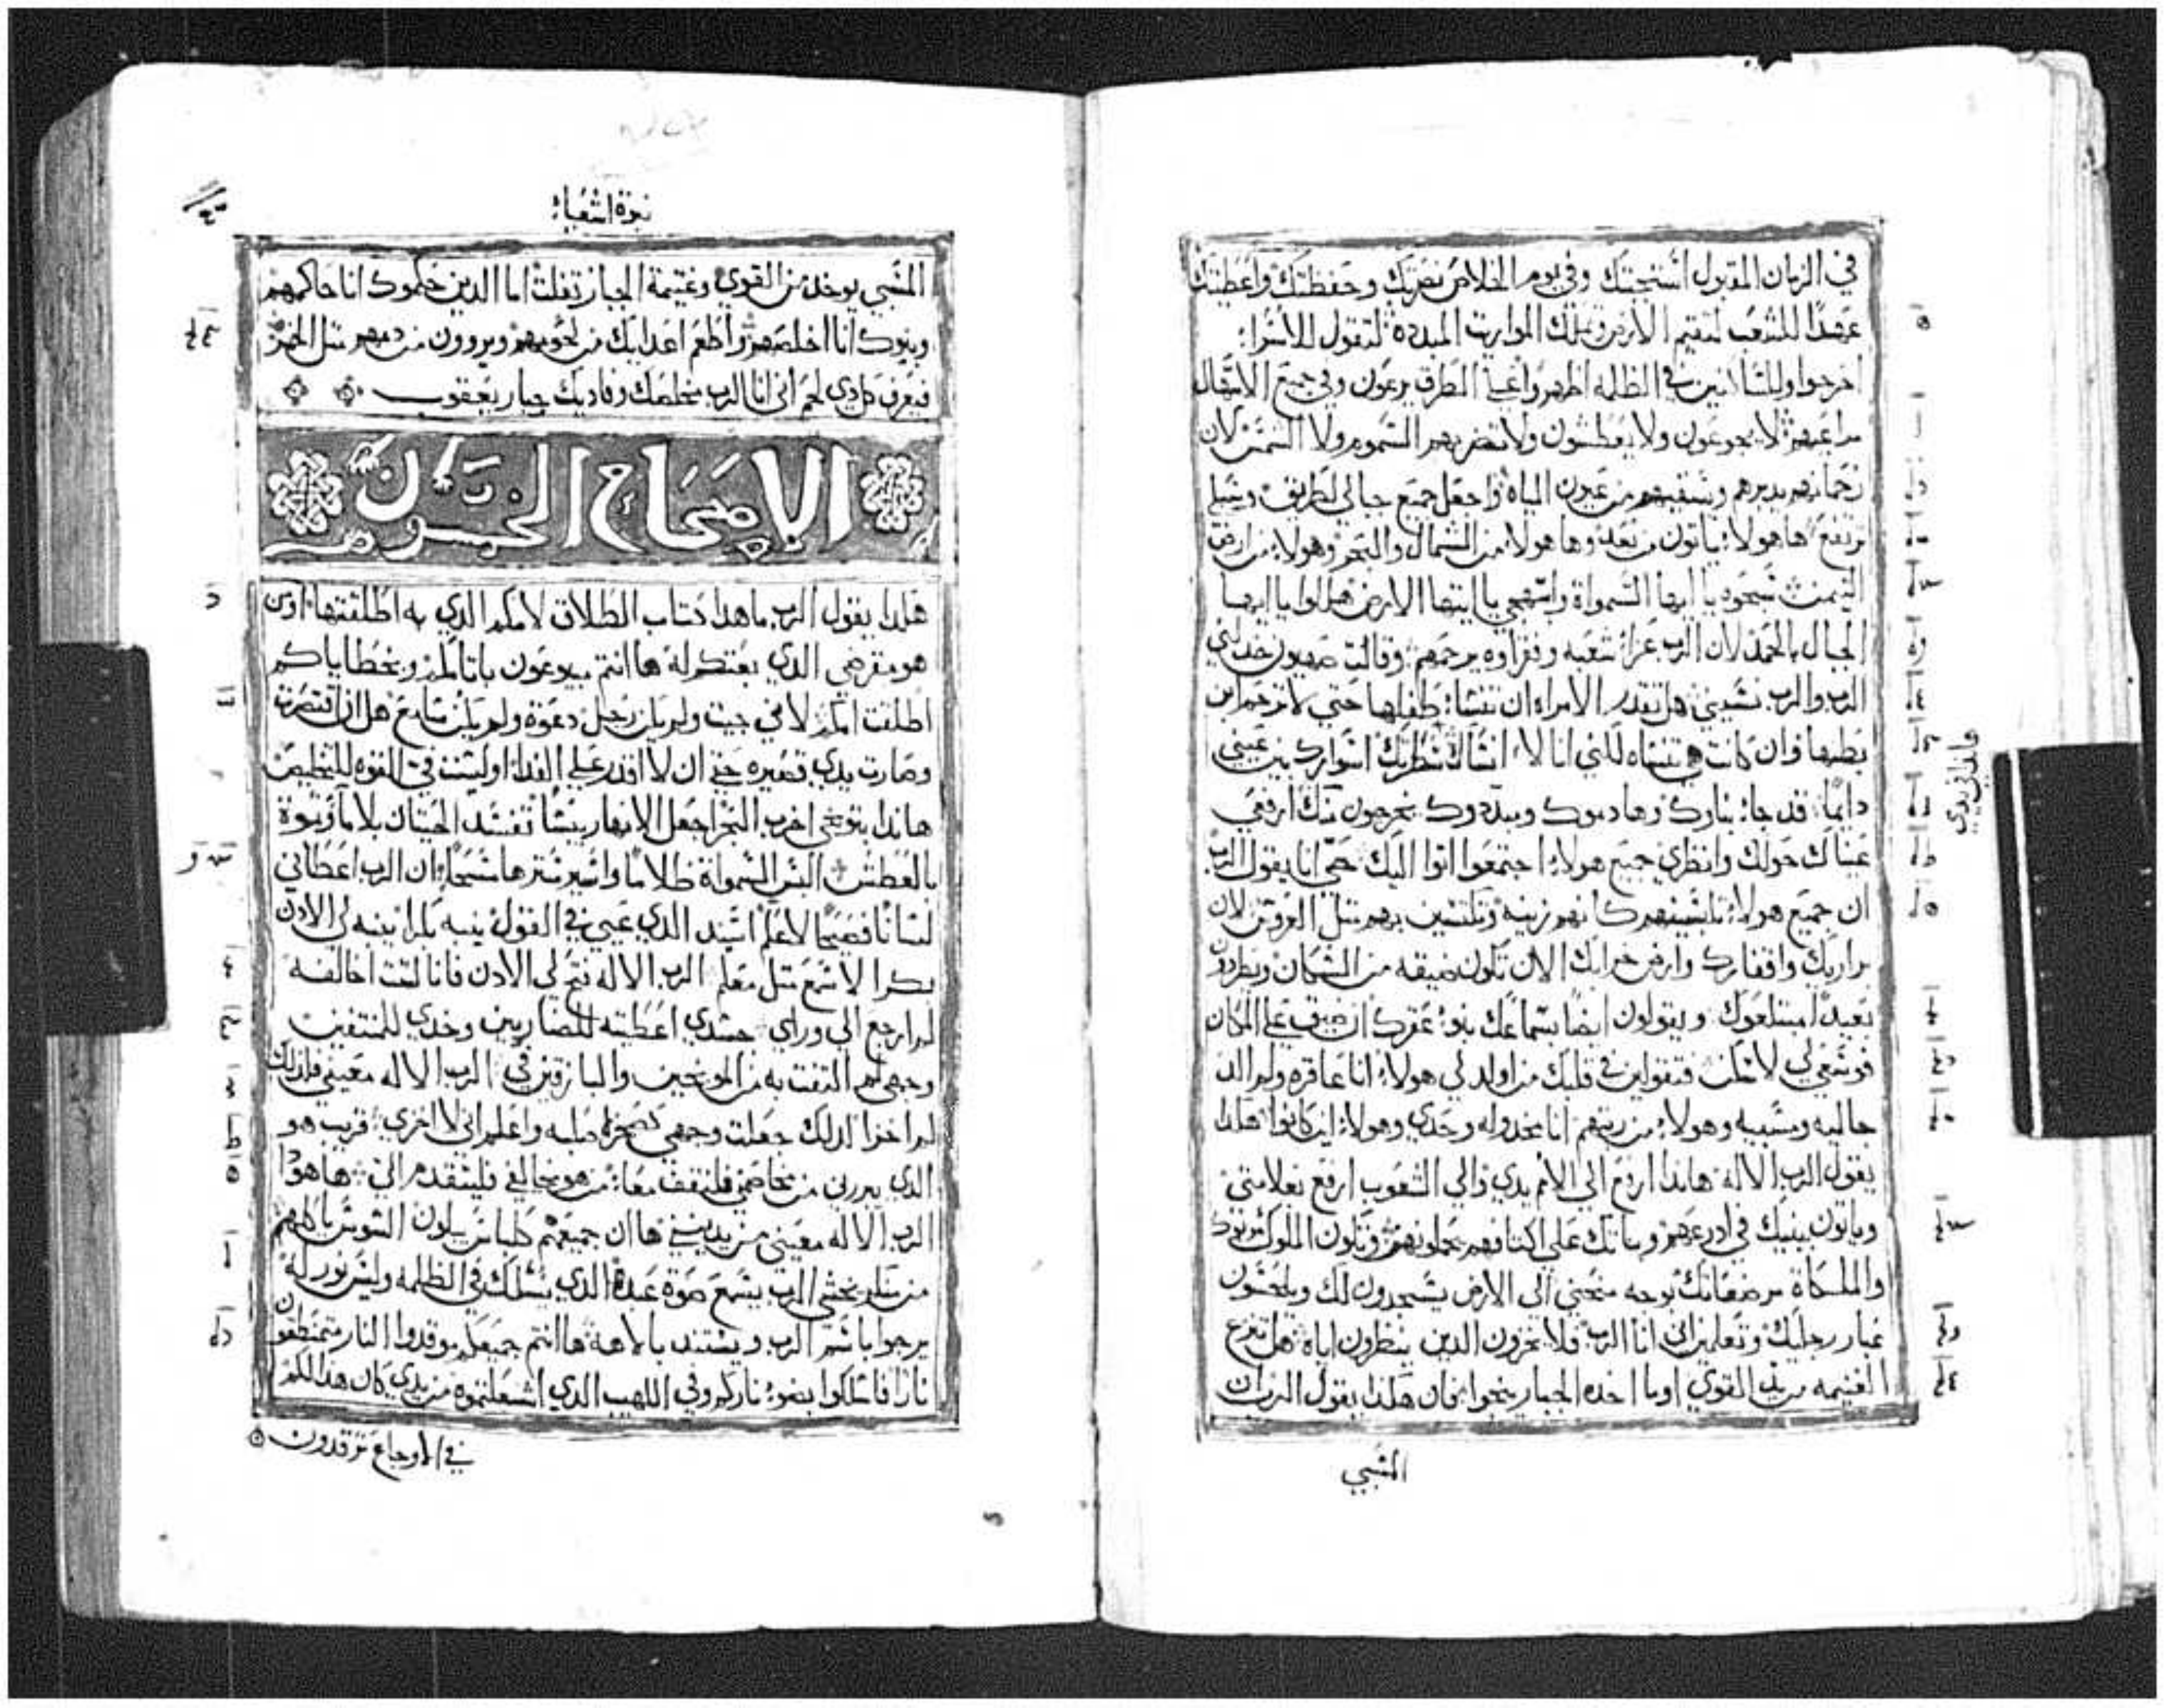 في الزمان المقبول استجبتك وفي يوم الخلاص نصرتك وحفظتك واعطيتك
عهدًا للشعب لتقيم الارض وتملك المواريت المبدده لتقول للاسرا:
اخرجوا وللساكنين في الظلمه اظهروا علي الطرق يرعون وفي جميع الاسهال
مراعيهم لا يجوعون ولا يعطشون ولا تضربهم السموم ولا الشمس لان
رحمانهم يدبرهم ويسقيهم من عيون المياه واجعل جميع جبالي لطريق وسبلي
ترتفع هاهولاء ياتون من بعد وها هولاء من الشمال والبحر وهولاء من ارض
التيمن سبحوه يا ايها السمواة وابتهجي يا ايتها الارض هللوا يا ايها
الجبال بالحمد لان الرب عزا شعبه وفقراوه يرحمهم وقالت صهيون خدلني
الرب والرب نسيني هل تقدر الامراه ان تنسا طفلها حتي لا ترحم ابن
بطنها وان كانت هي تنساه لكني انا لا انساك اسوارك بين عيني
دايمًا قد جا بناوك وهادموك ومبددوك يخرجون منك ارفعي
عيناك حولك وانظري جميع هولاء اجتمعوا اتوا اليك حي انا يقول الرب
ان جميع هولاء تلبسينهم كانهم زينه وتكتسين بهم متل العروس لان
براريك واقفارك وارض خرابك الان تكون ضيقه من السكان ويطردون
بعيدًا مبتلعوك ويقولون ايضًا بسماعك بنو عقرك ان ضيق علي المكان
فوسعي لي لاسكن فتقولين في قلبك من اولد لي هولاء انا عاقره ولم الد
جاليه ومسبيه وهولاء من رباهم انا مخدوله وحدي وهولاء اين كانوا هكدا
يقول الرب الاله هاندا ارفع الي الامم يدي والي الشعوب ارفع علامتي
وياتون ببنيك في ادرعهم وبناتك علي اكتافهم يحملونهم وتكون الملوك
والملكاة مرضعاتك بوجه منحني الي الارض يسجدون لك ويلحسون
غبار رجليك وتعلمين اني انا الرب فلا يخزون الدين ينظرون اياه هل تنزع
الغنيمه من القوي او ما اخده الجبار ينجوا فان هكدا يقول الرب ان
السبي
نبوة اشعيا
السبي يوخد من القوي وغنيمة الجبار تفلت اما الدين حكموك انا حاكمهم
وبنوك انا اخلصهم واطعم اعدايك من لحومهم ويروون من دمهم متل الخمر
فيعرف كل دي لحم اني انا الرب مخلصك وفاديك جبار يعقوب
الاصحاح الخمسون
هكدا يقول الرب ما هدا كتاب الطلاق لامكم الدي به اطلقتها او من
هو مقرضي الدي بعتكم له ها انتم مبيوعون باتامكم وبخطاياكم
اطلقت امكم لاني جيت ولم يكن رجل دعوة ولم يكن سامع هل ان قصرت
وصارت يدي قصيره حتي ان لا اقدر علي الفدا او ليست في القوه للتخليص
هاندا بتوبيخي اخرب البحر اجعل الانهار يبسًا تفسد الحيتان بلا ما وتموة
بالعطش البس السمواة ظلامًا واصير سترها مسحًا ان الرب اعطاني
لسانًا فصيحًا لاعلم اسند الدي عيي في القول ينبه بكرا ينبه لي الادن
بكرا لاسمع متل معلم الرب الاله فتح لي الادن فانا لست اخالفه
لم ارجع الي وراي جسدي اعطيته للضاربين وخدي للمنتفين
وجهي لم التفت به من الموبخين والبازقين في الرب الاله معيني فلدلك
لم اخزا لدلك جعلت وجهي كصخرة صلبه واعلم اني لا اخزي قريب هو
الدي يبررني من يخاصمني فلنقف معًا من هو مخالفي فليتقدم الي ها هودا
الرب الاله معيني من يدينني ها ان جميعهم كلباس يبلون السوس ياكلهم
من منكم يخشي الرب يسمع صوة عبده الدي يسلك في الظلمه وليس نور له
يرجوا باسم الرب ويستند بالاهه ها انتم جميعكم موقدوا النار متمنطقون
نارًا فاسلكوا بضو ناركم وفي اللهيب الدي اشعلتموه من يدي كان هدا لكم
في الاوجاع ترقدون